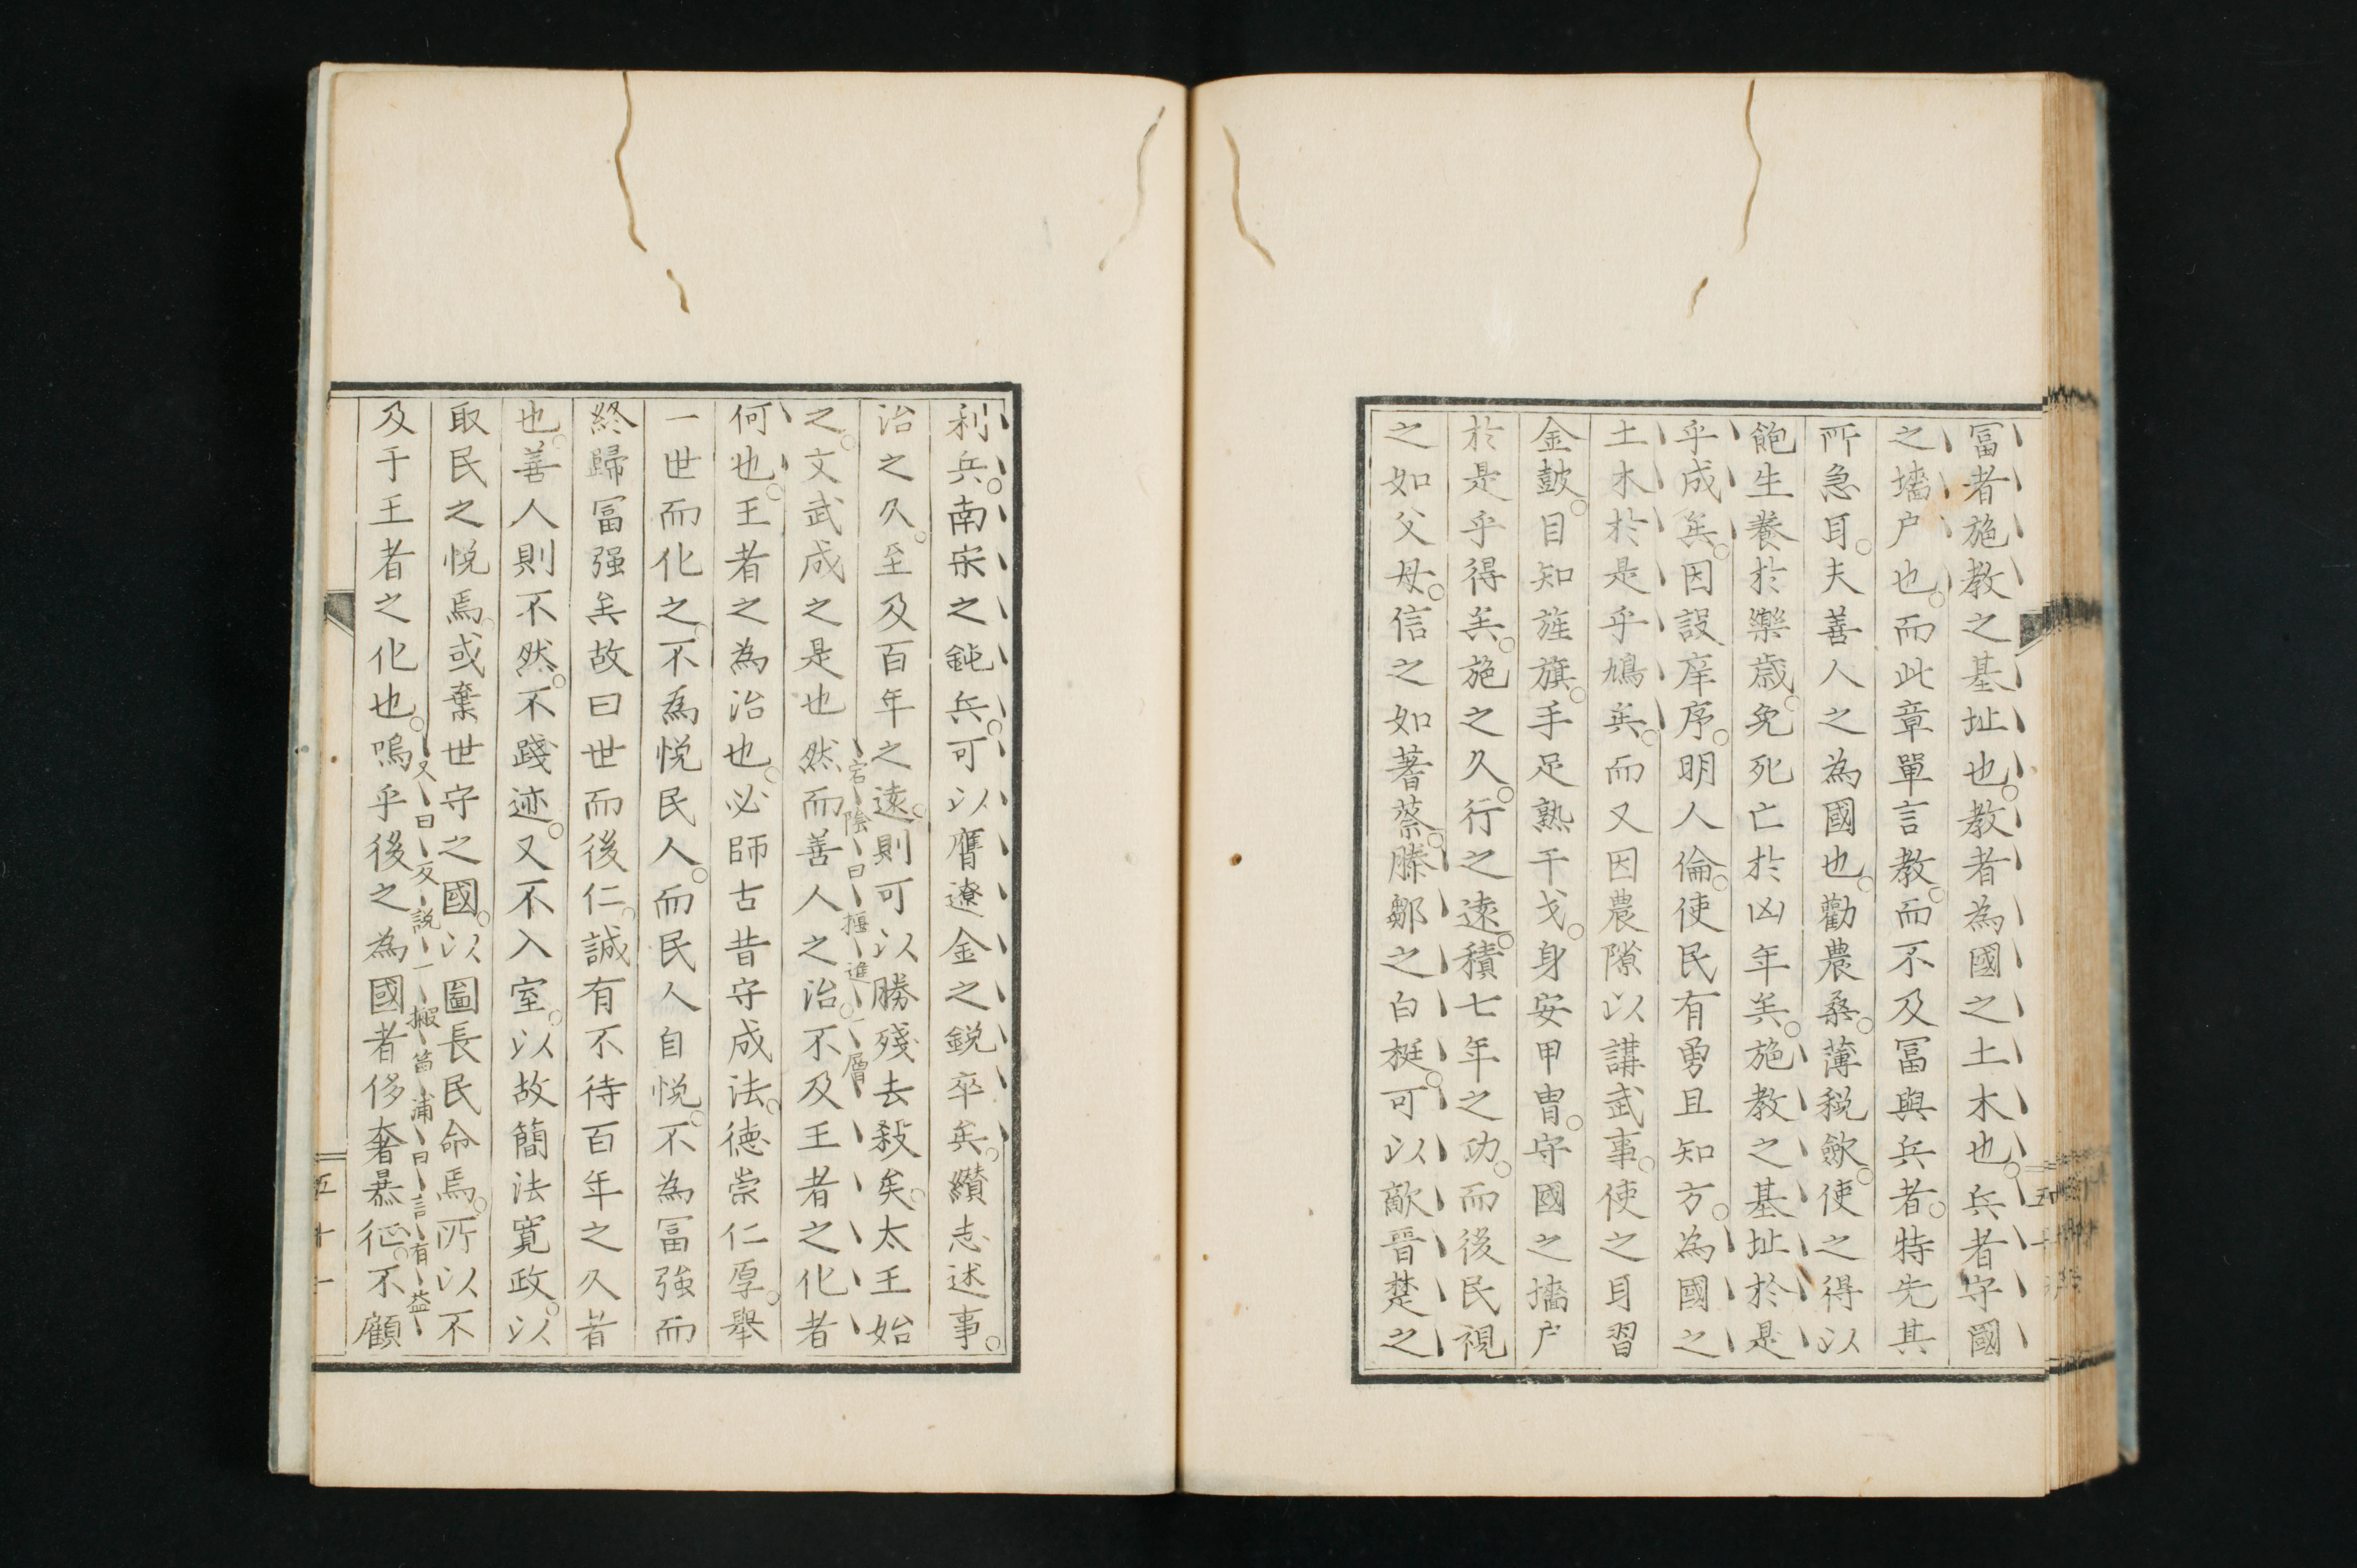 冨者施教之基址也教者為國之土木也兵者守國
之墻户也而此章單言教而不及冨與兵者特先其
所急耳夫善人之為國也勸農桑薄稅斂使之得以
飽生養於樂歳免死亡於凶年矣施教之基址於是
乎成矣因設庠序明人倫使民有勇且知方為國之
土木於是乎鳩矣而又因農隙以講武事使之耳習
金鼓目知旌旗手足熟干戈身安甲冑守國之墻户
於是乎得矣施之久行之遠積七年之功而後民視
之如父母信之如蓍蔡滕鄒之白梃可以敵晉楚之
利兵南宋之鈍兵可以膺遼金之鋭卒矣纉志述事
治之久至及百年之遠則可以勝殘去殺矣太王始
之文武成之是也然而善人之治不及王者之化者
宕陰曰推進一層
何也王者之為治也必師古昔守成法德崇仁厚舉
一世而化之不為悦民人而民人自悦不為冨強而
終歸冨强矣故曰世而後仁誠有不待百年之久者
也善人則不然不踐迹又不入室以故簡法寛政以
取民之悦焉或棄世守之國以圖長民命焉所以不
又曰又説一搬
笛浦曰言有益
及于王者之化也嗚乎後之為國者侈奢暴征不顧
五十一